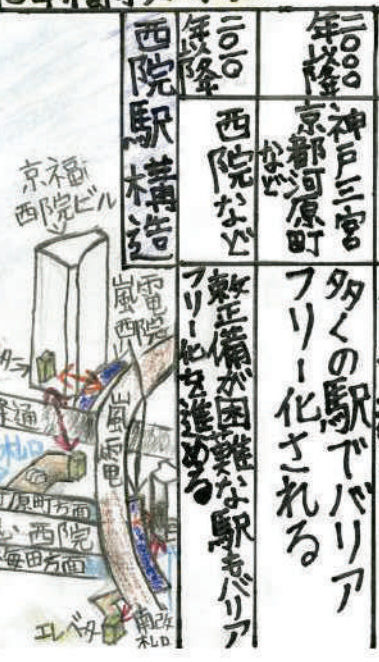 二〇〇〇
年以降
神戸三宮
京都河原町
など
多くの駅でバリア
フリー化される
二〇一〇
年以降
西院など
整備が困難な駅もバリア
フリー化を進める
西院駅構造
京福
西院ビル
嵐電
西院
嵐電
札口
原町方面
西院
梅田方面
エレベーター
南改
札口